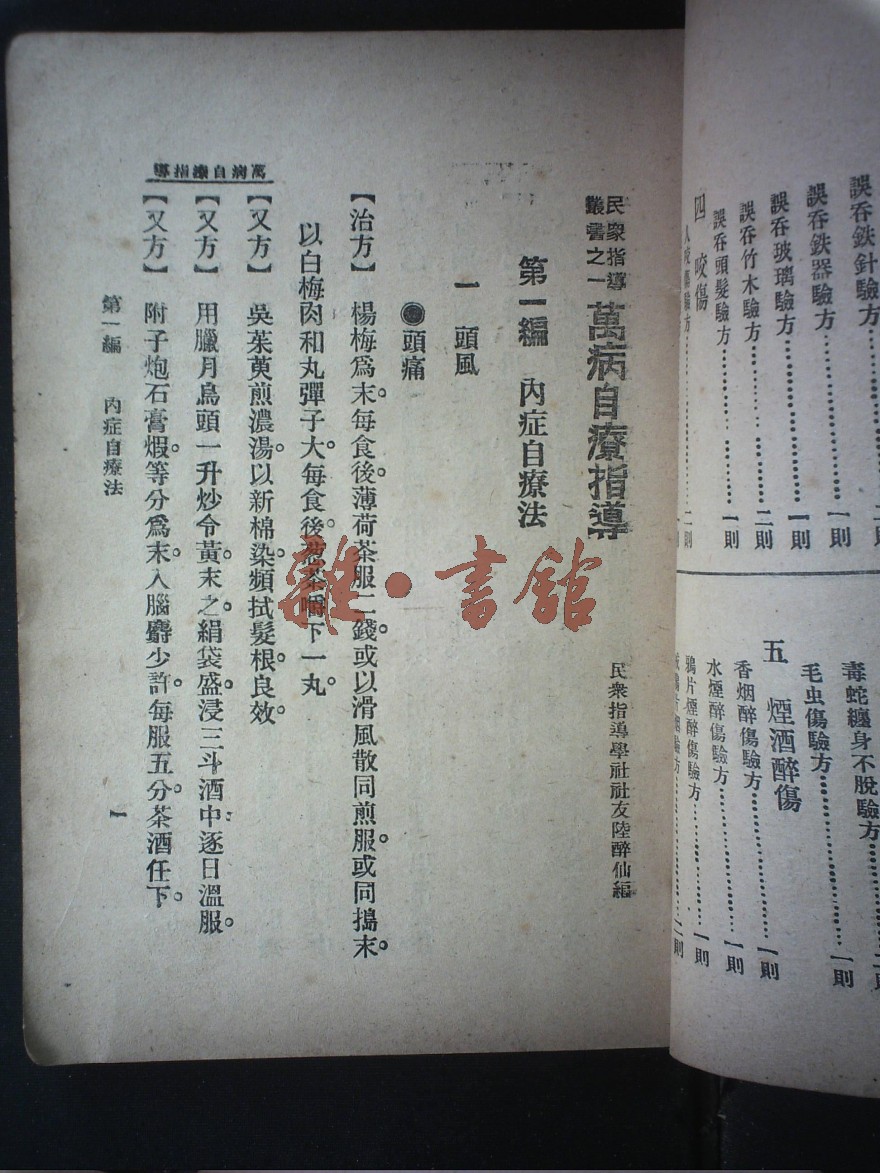 誤吞鉄針驗方
誤吞鉄器驗方…………一則
誤吞玻璃驗方…………一則
誤吞竹木驗方…………二則
誤吞頭髮驗方…………一則
四　咬傷
毒蛇纏身不脫驗方
毛虫傷驗方…………一則
五　煙酒醉傷
香烟醉傷驗方…………一則
水煙醉傷驗方…………一則
鴉片煙醉傷驗方…………一則
民衆指導
叢書之一
萬病自療指導
民衆指導學社社友陸醉仙編
第一編　內症自療法
一　頭風
●頭痛
【治方】　楊梅爲末。每食後。薄荷茶服二錢。或以滑風散同煎服。或同搗末。
以白梅肉和丸彈子大。每食後。葱茶嚼下一丸。
【又方】　吳茱萸煎濃湯。以新棉染頻拭髮根。良效。
【又方】　用臘月烏頭一升炒令黃。末之。絹袋盛。浸三斗酒中。逐日溫服。
【又方】　附子炮石膏煆。等分爲末。入腦麝少許。每服五分。茶酒任下。
萬病自療指導
第一編　內症自療法
一
雜·書館